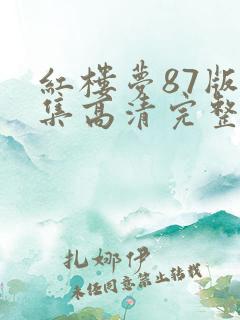 紅樓夢87版
集高清完整
扎娜伊
未经同意禁止转载